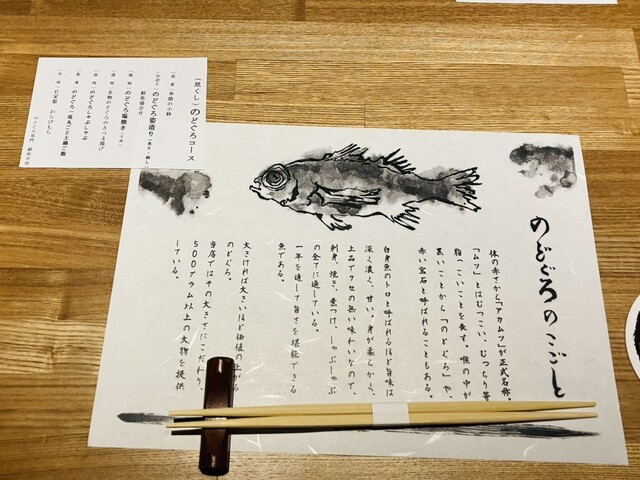 のどぐろのこごと
体の赤さから「アカムツ」が正式名称。
「ムツ」とはむつこい、むっちり等
脂っこいことを表す。喉の中が
黒いことから「のどぐろ」や、
赤い宝石と呼ばれることもある。
白身魚のトロと呼ばれるほど旨味は
深く濃く、甘い。身が柔らかく、
上品でクセの無い味わいなので、
刺身、焼き、煮つけ、しゃぶしゃぶ
の全てに適している。
一年を通して旨さを堪能できる
魚である。
大きければ大きいほど価値の上がる
のどぐろ。
当店ではその大きさにこだわり、
500グラム以上の大物を提供
している。
(尽くし)のどぐろコース
季節の小鉢
のどぐろ姿造り
鮮魚盛合せ
のどぐろ塩焼き
名物のどぐろのさつま揚げ
のどぐろしゃぶしゃぶ
のどぐろ一尾丸ごと土鍋ご飯
自家製 わらびもち